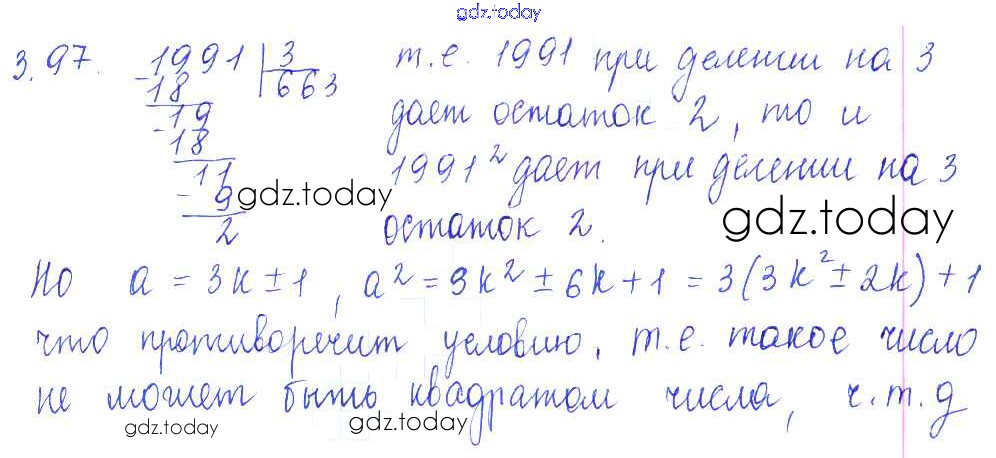 gdz.today
3.97. 1991 | 3 т.е. 1991 при делении на 3
-18 663 дает остаток 2, то и
-19
18 1991² дает при делении на 3
11
- 9 gdz.today gdz.today
2 остаток 2.
Но a = 3k ± 1, a² = 9k² ± 6k + 1 = 3(3k² ± 2k) + 1
что противоречит условию, т.е. такое число
не может быть квадратом числа, ч.т.д
gdz.today gdz.today